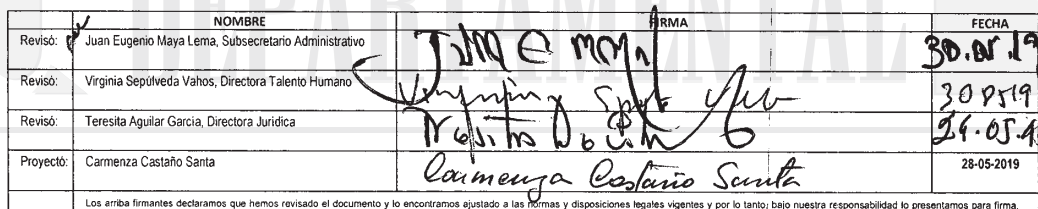 DEPARTAMENTAL
NOMBRE FIRMA FECHA
Revisó: Juan Eugenio Maya Lema, Subsecretario Administrativo 30.05.19
Revisó: Virginia Sepúlveda Vahos, Directora Talento Humano Virginia 300519
Revisó: Teresita Aguilar Garcia, Directora Jurídica Teresita
Proyectó: Carmenza Castaño Santa Carmenza Castaño Santa 28-05-2019
Los arriba firmantes declaramos que hemos revisado el documento y lo encontramos ajustado a las normas y disposiciones legales vigentes y por lo tanto; bajo nuestra responsabilidad lo presentamos para firma.